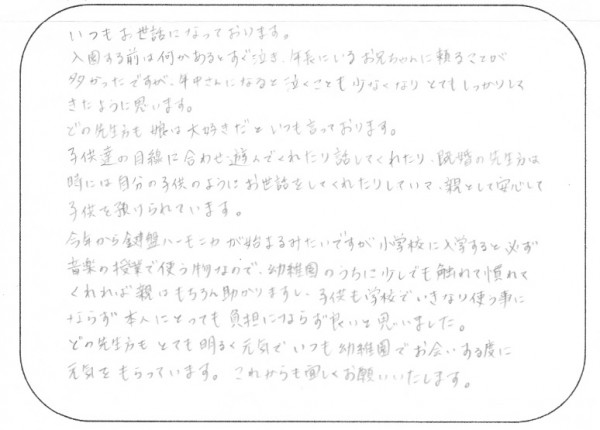 いつもお世話になっております。
入園する前は何かあるとすぐ泣き、年長にいるお兄ちゃんに頼ることが
多かったですが、年中さんになると泣くことも少なくなりとてもしっかりして
きたように思います。
どの先生方も娘は大好きだといつも言っております。
子供達の目線に合わせ遊んでくれたり話してくれたり、既婚の先生方は
時には自分の子供のようにお世話をしてくれたりしていて、親として安心して
子供を預けられています。
今年から鍵盤ハーモニカが始まるみたいですが小学校に入学すると必ず
音楽の授業で使う物なので、幼稚園のうちに少しでも触れて慣れて
くれれば親はもちろん助かりますし、子供も学校でいきなり使う事に
ならず本人にとっても負担にならず良いと思いました。
どの先生方もとても明るく元気でいつも幼稚園でお会いする度に
元気をもらっています。これからも宜しくお願いいたします。